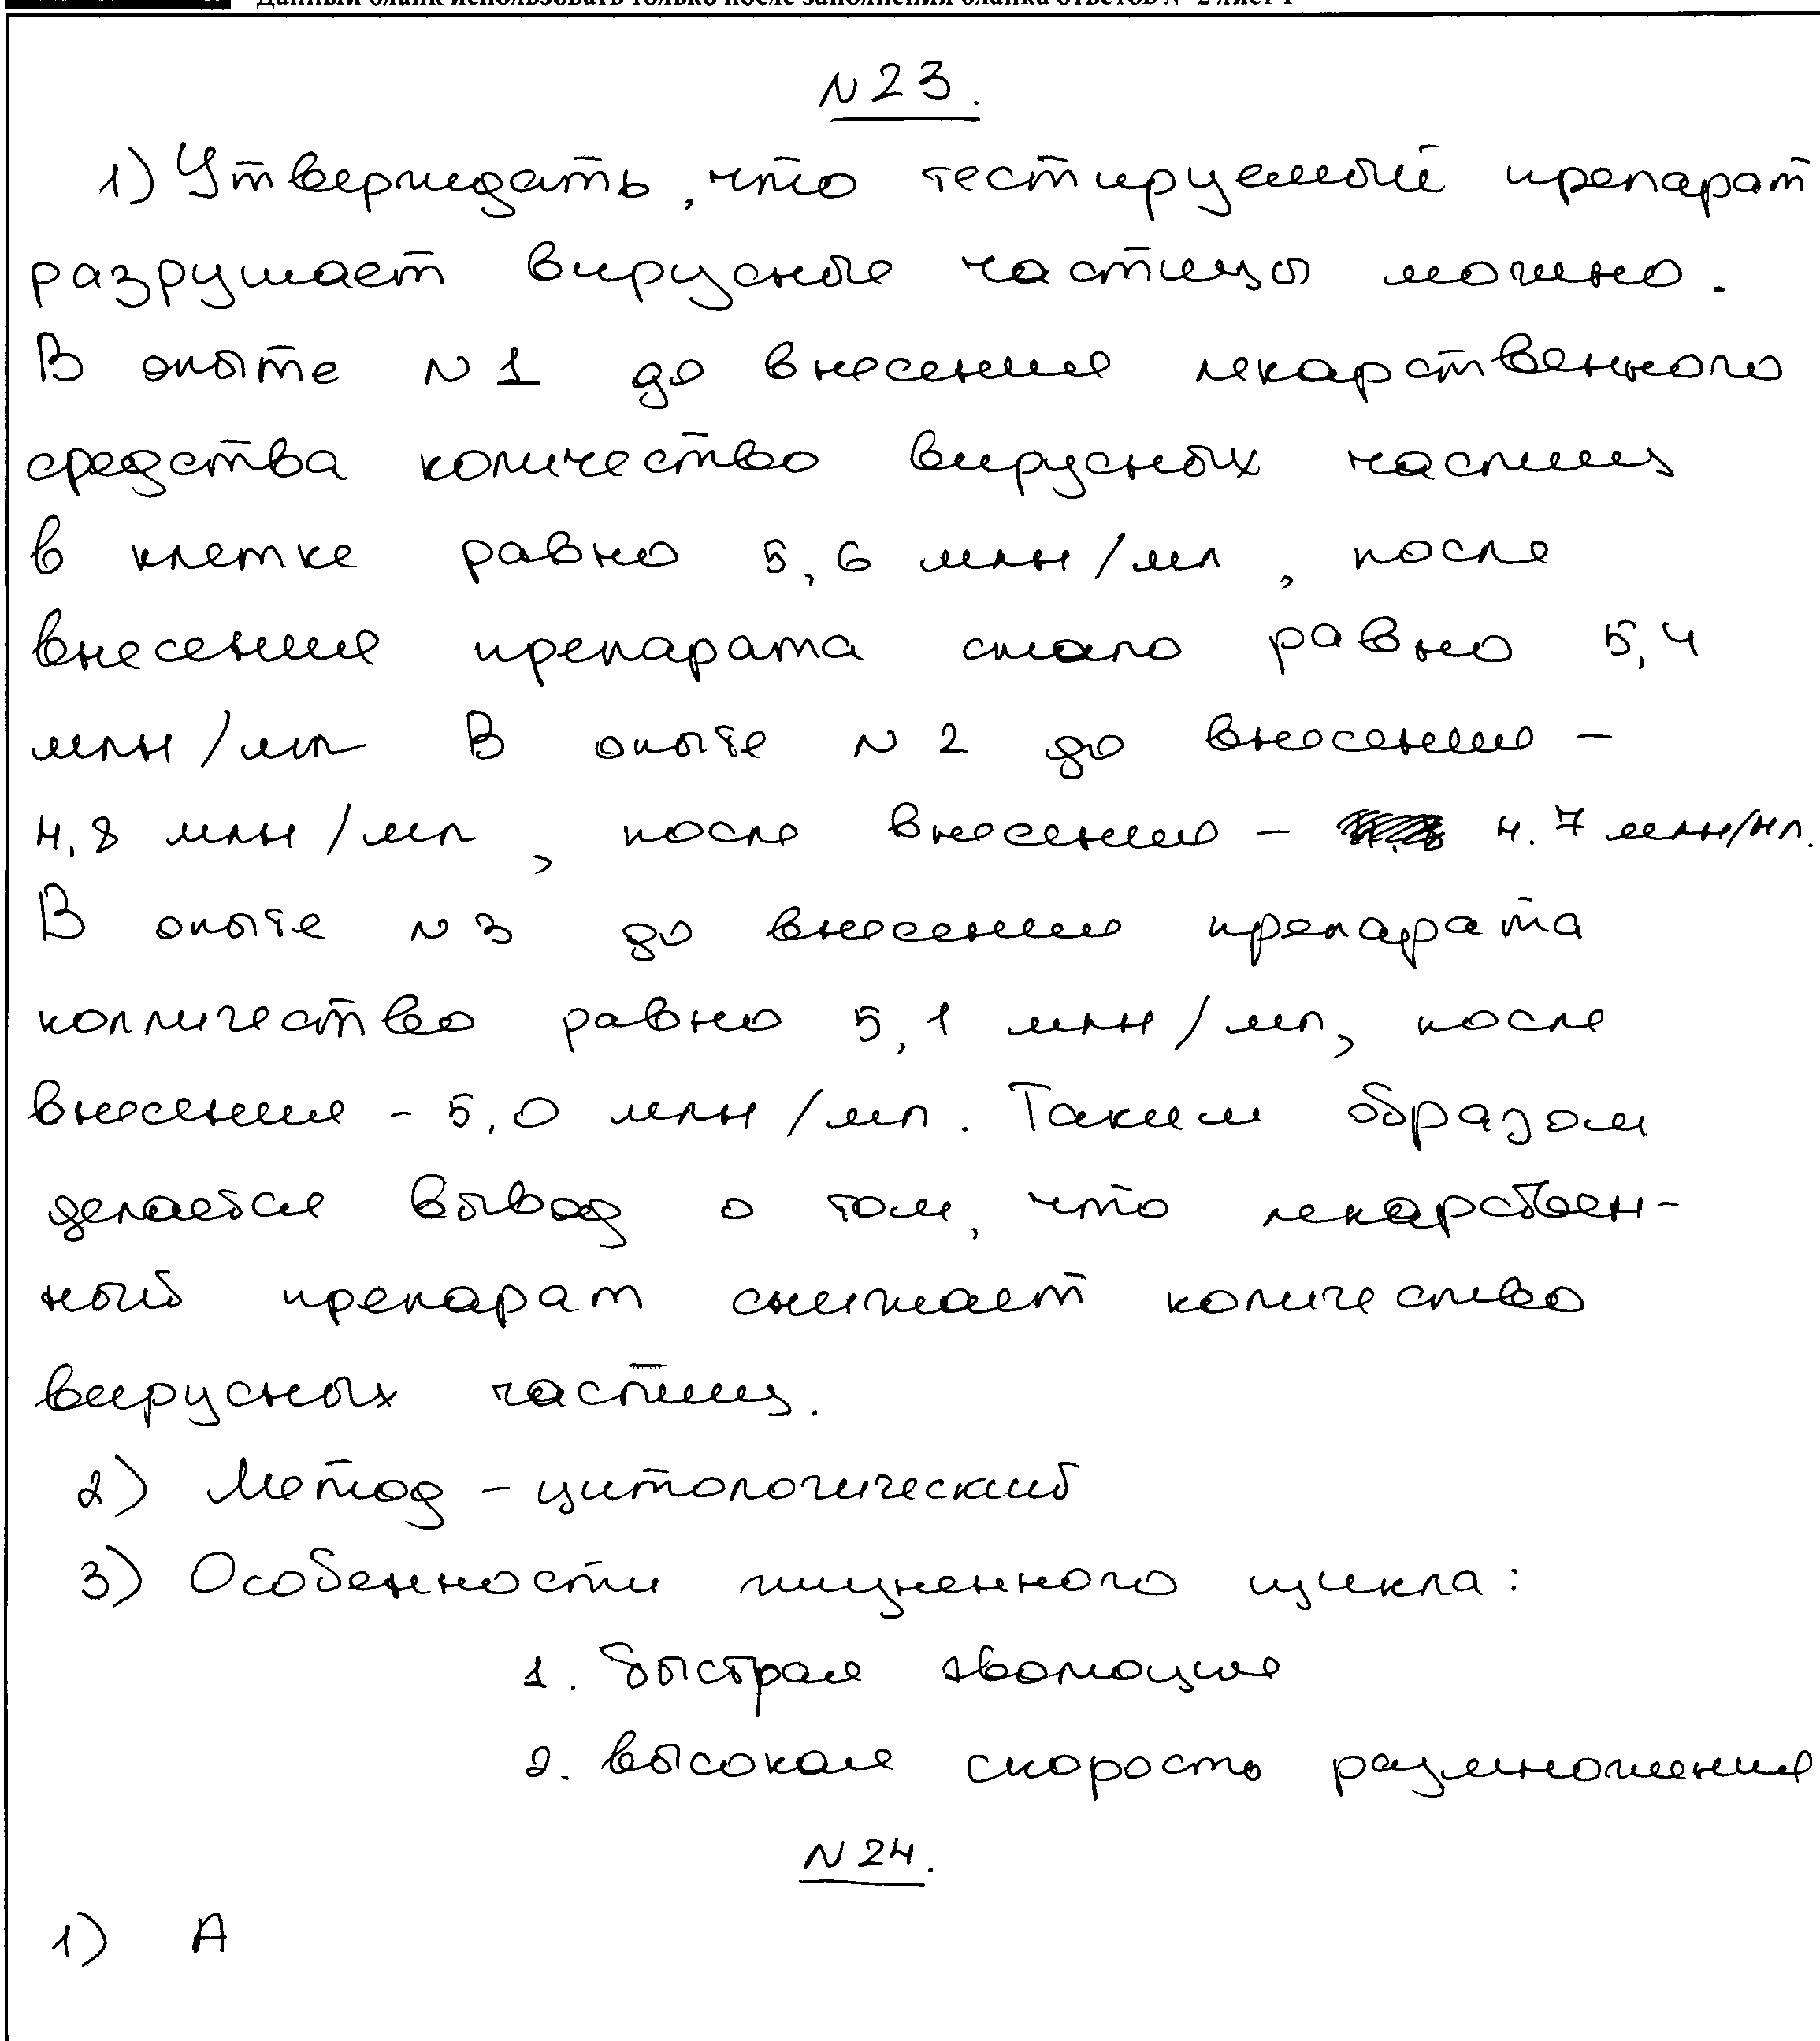 Данный бланк использовать только после заполнения бланка ответов № 2 лист 1
N23.
1) Утверждать, что тестируемый препарат
разрушает вирусные частицы можно.
В опыте N1 до внесения лекарственного
средства количество вирусных частиц
в клетке равно 5,6 млн/мл, после
внесения препарата стало равно 5,4
млн/мл В опыте N2 до внесения -
4,8 млн/мл, после внесения - 4.7 млн/мл.
В опыте N3 до внесения препарата
колличество равно 5,1 млн/мл, после
внесения - 5,0 млн/мл. Таким образом
делается вывод о том, что лекарствен-
ный препарат снижает количество
вирусных частиц.
2) Метод - цитологический
3) Особенности жизненного цикла:
1. быстрая эволюция
2. высокая скорость размножения
N24.
1) А